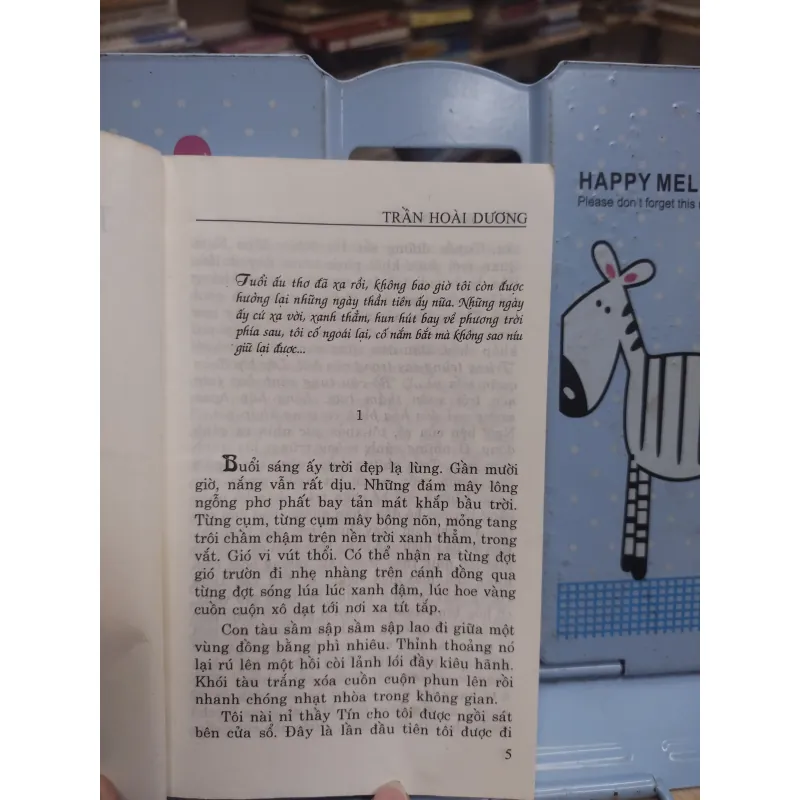 TRẦN HOÀI DƯƠNG
Tuổi ấu thơ đã xa rồi, không bao giờ tôi còn được
hưởng lại những ngày thần tiên ấy nữa. Những ngày
ấy cứ xa vời, xanh thẳm, hun hút bay về phương trời
phía sau, tôi cố ngoái lại, cố nắm bắt mà không sao níu
giữ lại được...
1
Buổi sáng ấy trời đẹp lạ lùng. Gần mười
giờ, nắng vẫn rất dịu. Những đám mây lông
ngỗng phơ phất bay tản mát khắp bầu trời.
Từng cụm, từng cụm mây bông nõn, mỏng tang
trôi chầm chậm trên nền trời xanh thẳm, trong
vắt. Gió vi vút thổi. Có thể nhận ra từng đợt
gió trườn đi nhẹ nhàng trên cánh đồng qua
từng đợt sóng lúa lúc xanh đậm, lúc hoe vàng
cuồn cuộn xô dạt tới nơi xa tít tắp.
Con tàu sầm sập sầm sập lao đi giữa một
vùng đồng bằng phì nhiêu. Thỉnh thoảng nó
lại rú lên một hồi còi lảnh lói đầy kiêu hãnh.
Khói tàu trắng xóa cuồn cuộn phun lên rồi
nhanh chóng nhạt nhòa trong không gian.
Tôi nài nỉ thầy Tín cho tôi được ngồi sát
bên cửa sổ. Đây là lần đầu tiên tôi được đi
5
HAPPY MEL
Please don't forget this